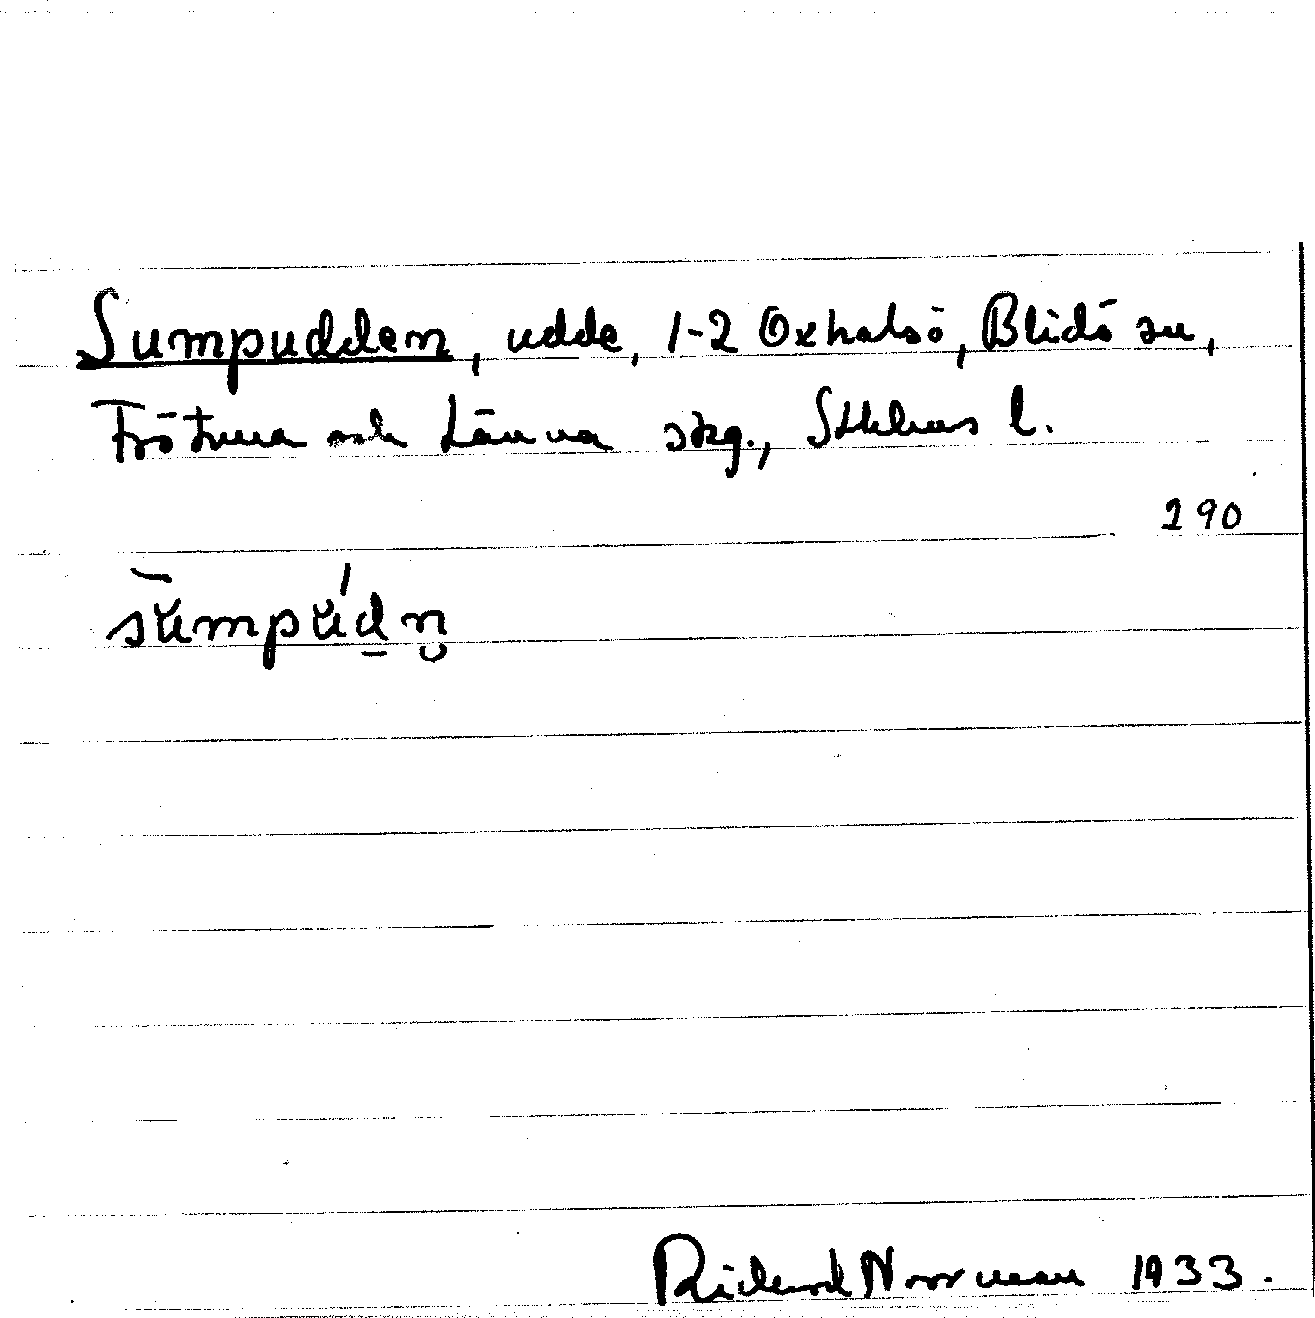 Sumpudden, udde, 1-2 Oxhalsö, Blidö sn,
Frötuna och Länna skg., Sthlms l.
290
sumpúdn̥
Rickard Norrman 1933.